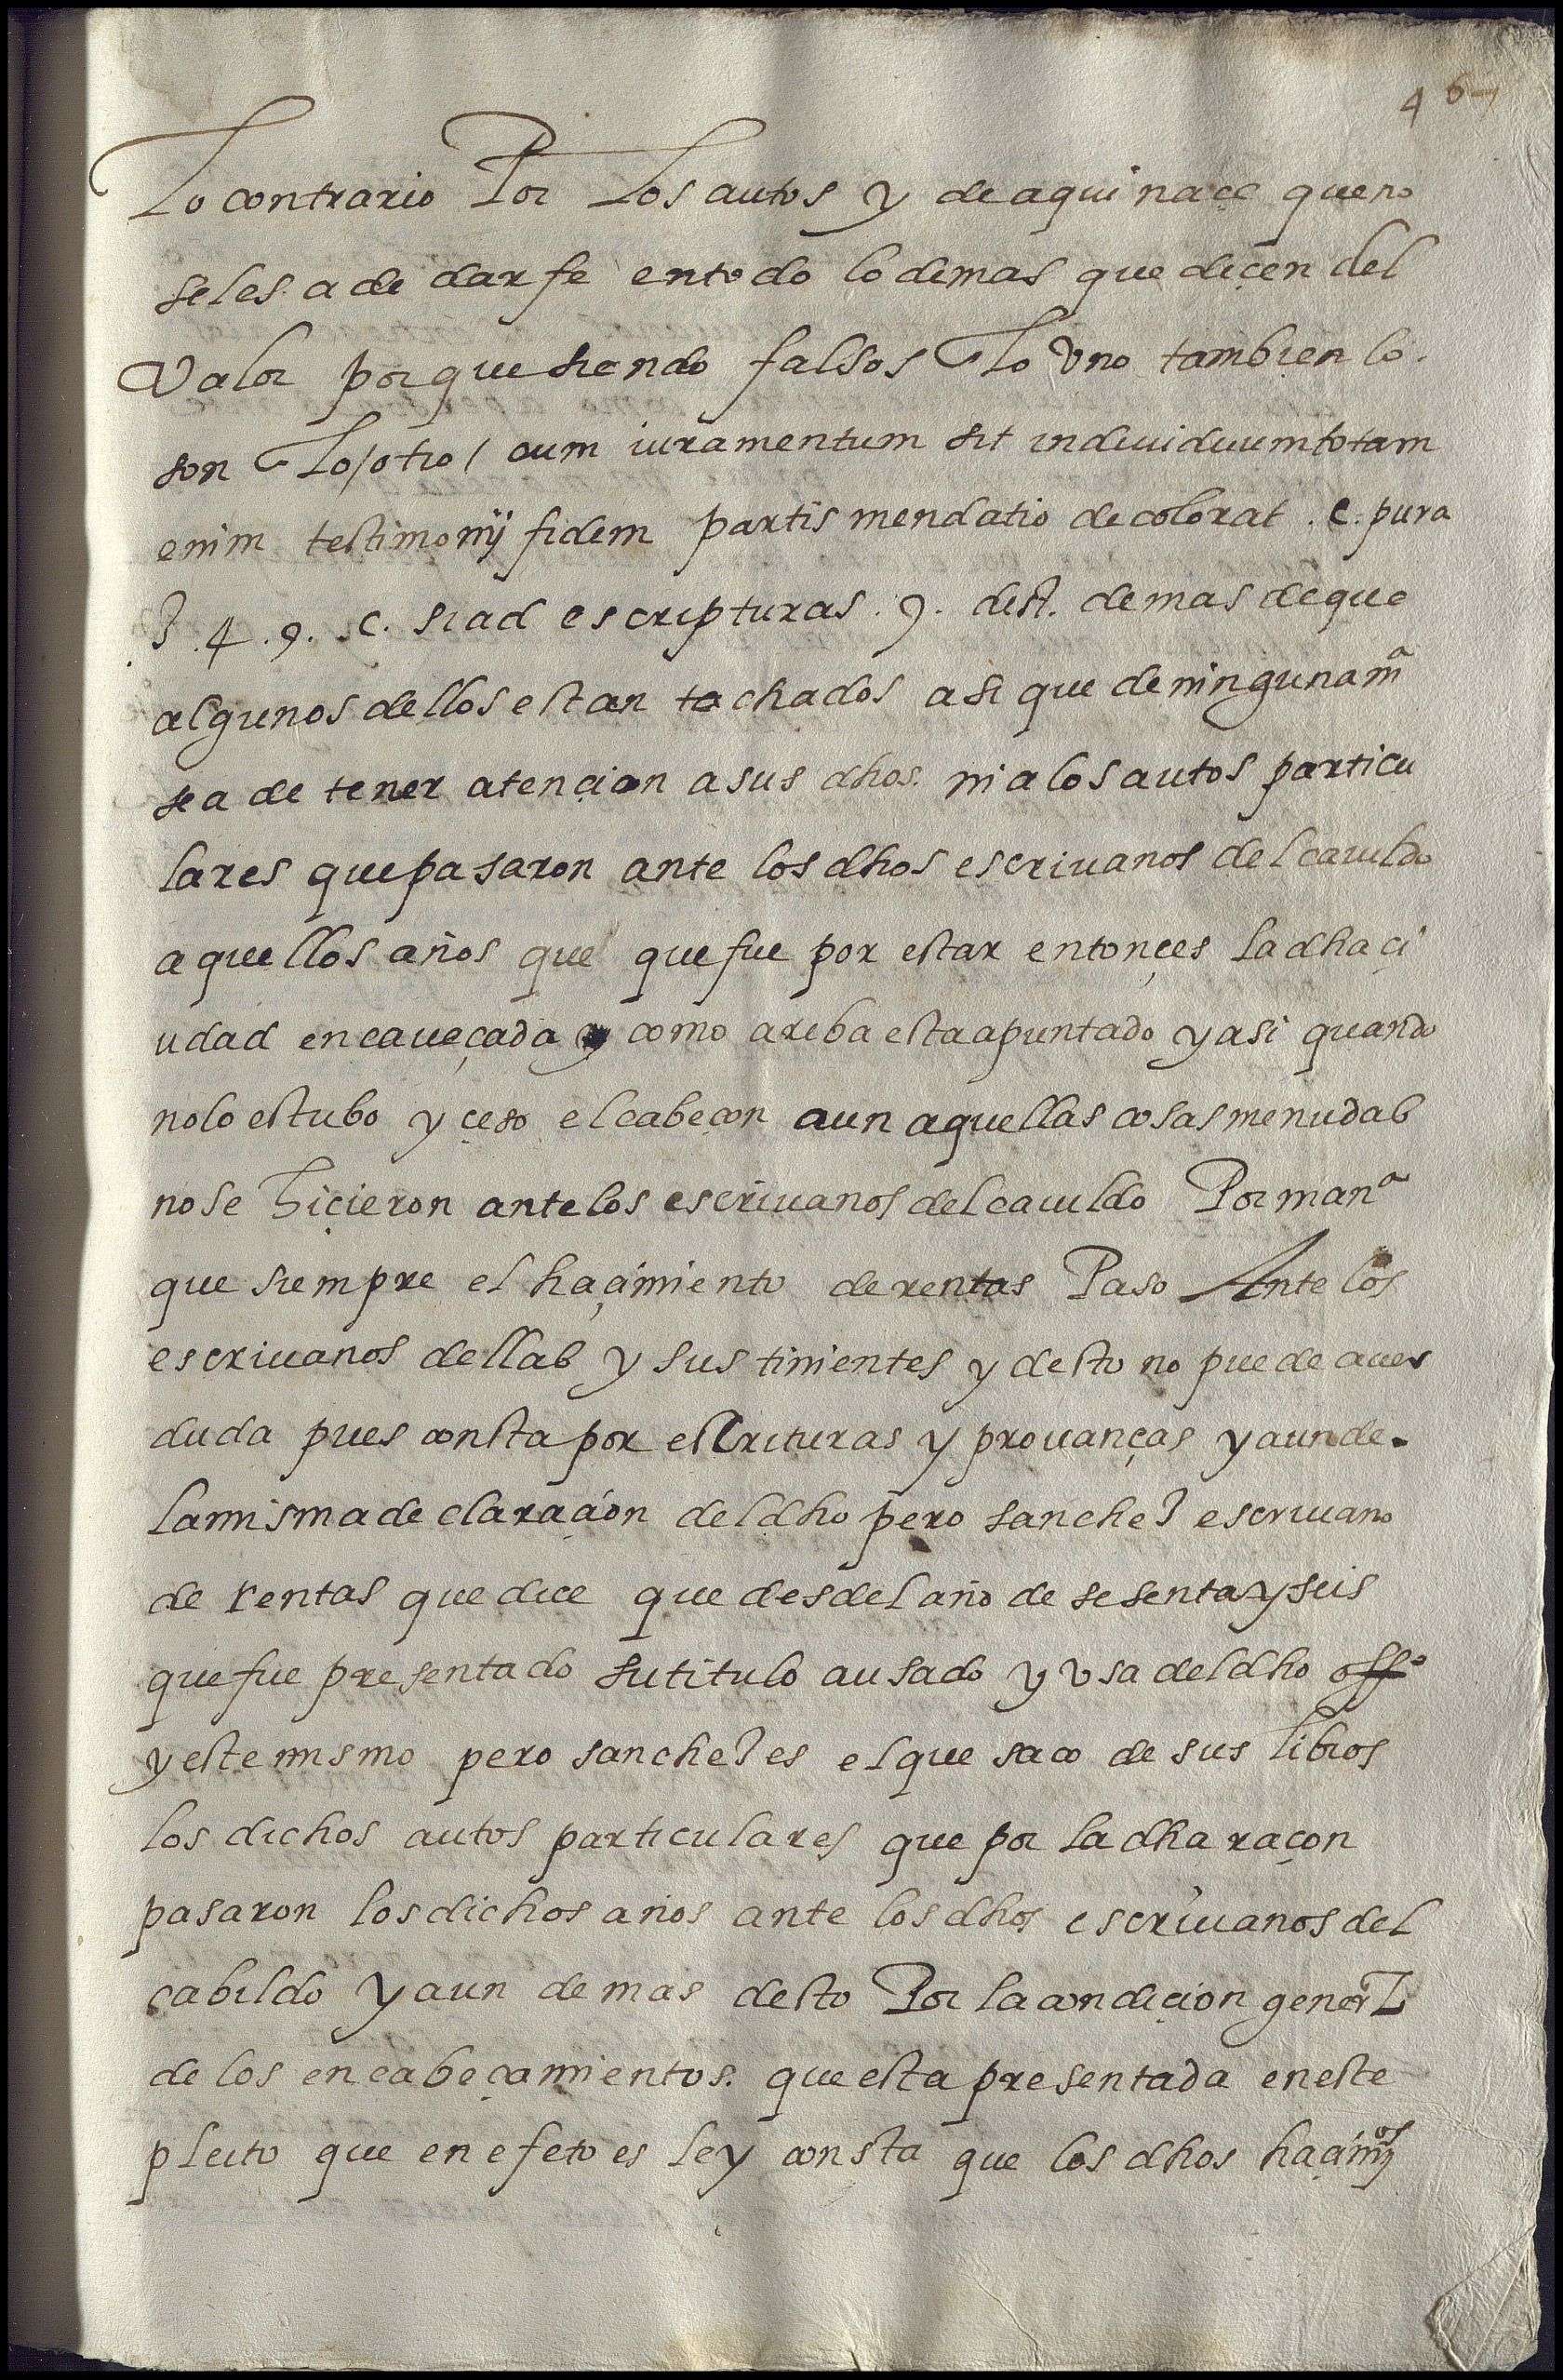 46
Lo contrario Por Los autos y de aqui naçe que no
se les a de dar fe en todo lo demas que deçen del
Valor porque siendo falsos Lo Vno tambien lo
son Lo otro / cum iuramentum sit indiuiduum totam
enim testimonij fidem partis mendatio decolorat . c. pura
3 . 4 . 9 . c. si ad escripturas . 9 . dist. demas de que
algunos dellos estan tachados asi que de ninguna mª
se a de tener atençion a sus dhos. ni a los autos particu
lares que pasaron ante los dhos escriuanos del cauildo
aquellos años que que fue por estar entonçes la dha çi
udad encaueçada y como ariba esta apuntado y asi quando
no lo estubo y çeso el cabeçon aun aquellas cosas menudas
no se hiçieron ante los escriuanos del cauildo Por manª
que siempre el haçimiento de rentas Paso Ante los
escriuanos dellas y sus tinientes y desto no puede auer
duda pues consta por escrituras y prouanças y aun de
la misma declaraçion del dho pero sanchez escriuano
de rentas que dice que desdel año de sesenta y seis
que fue presentado su titulo a usado y vsa del dho offº
y este mismo pero sanchez es el que saco de sus libros
los dichos autos particulares que por la dha raçon
pasaron los dichos años ante los dhos escriuanos del
cabildo y aun demas desto Por la condiçion generL
de los encabeçamientos. que esta presentada en este
pleito que en efeto es ley consta que los dhos haçimos